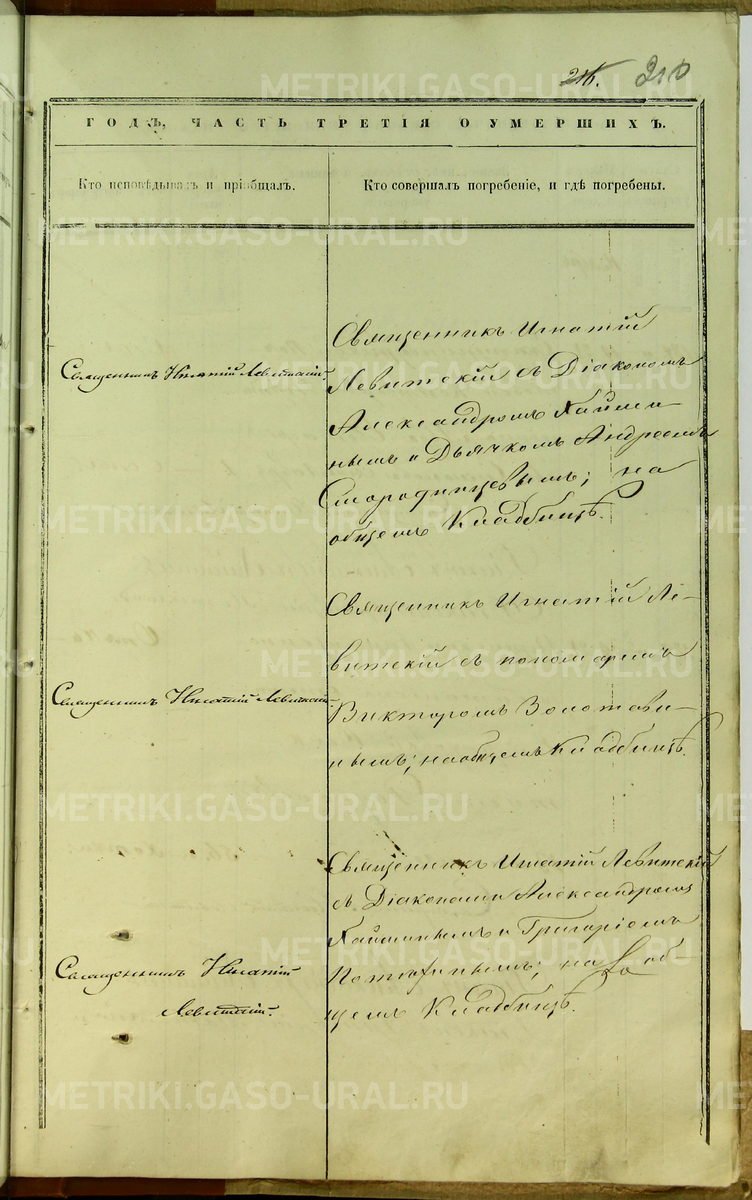 216. 210
ГОДЪ, ЧАСТЬ ТРЕТІЯ О УМЕРШИХЪ.
Кто исповѣдывалъ и пріобщалъ.
Кто совершалъ погребеніе, и гдѣ погребены.
Священникъ Игнатій Левитскій.
Священникъ Игнатій
Левитскій съ Діакономъ
Александромъ Кайми
нымъ и Дьячкомъ Андреемъ
Смородинцевымъ; на
общемъ Кладбищѣ.
Священникъ Игнатій Левитскій
Священникъ Игнатій Ле-
витскій съ пономаремъ
Викторомъ Золотави-
нымъ; на общемъ Кладбищѣ.
Священникъ Игнатій
Левитскій.
Священникъ Игнатій Левитскій
съ Діаконами Александромъ
Кайминымъ и Григоріемъ
Потафинымъ; на об-
щемъ Кладбищѣ.
METRIKI.GASO-URAL.RU